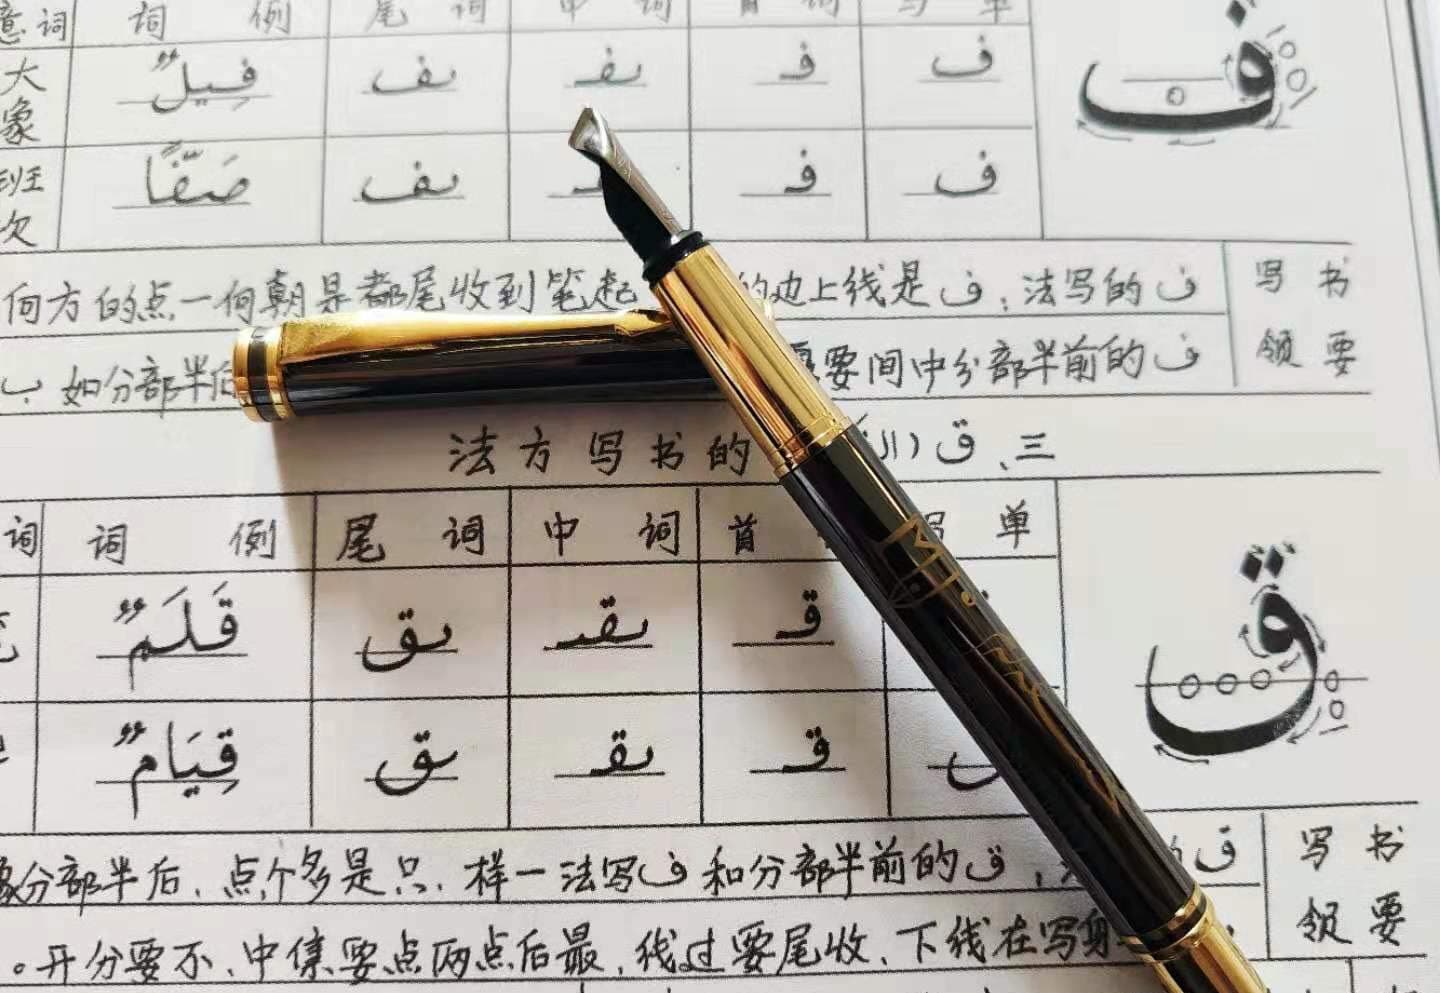 单 写 首 词 中 词 尾 例 词 意词
ف ف ف ـفـ ـف فِيلٌ 大象
ف ف ـف صَفًّا 班次
书写 ف 的写法:ف 是线上边的 起笔到收尾都是朝何一点的方何
要领 ف 的前半部分中间要 后半部分如 ب
三、ق (ال 的书写方法
单 写 首 词 中 词 尾 例 词 词
قـ ـقـ ـق قَلَمٌ
ق قـ ـقـ ـق قِيَامٌ
书写 ق 的 ,ق 的前半部分和 ف 写法一样,只是多个点,后半部分象
要领 身写在线下,收尾要过线,最后点两点要集中,不要分开。